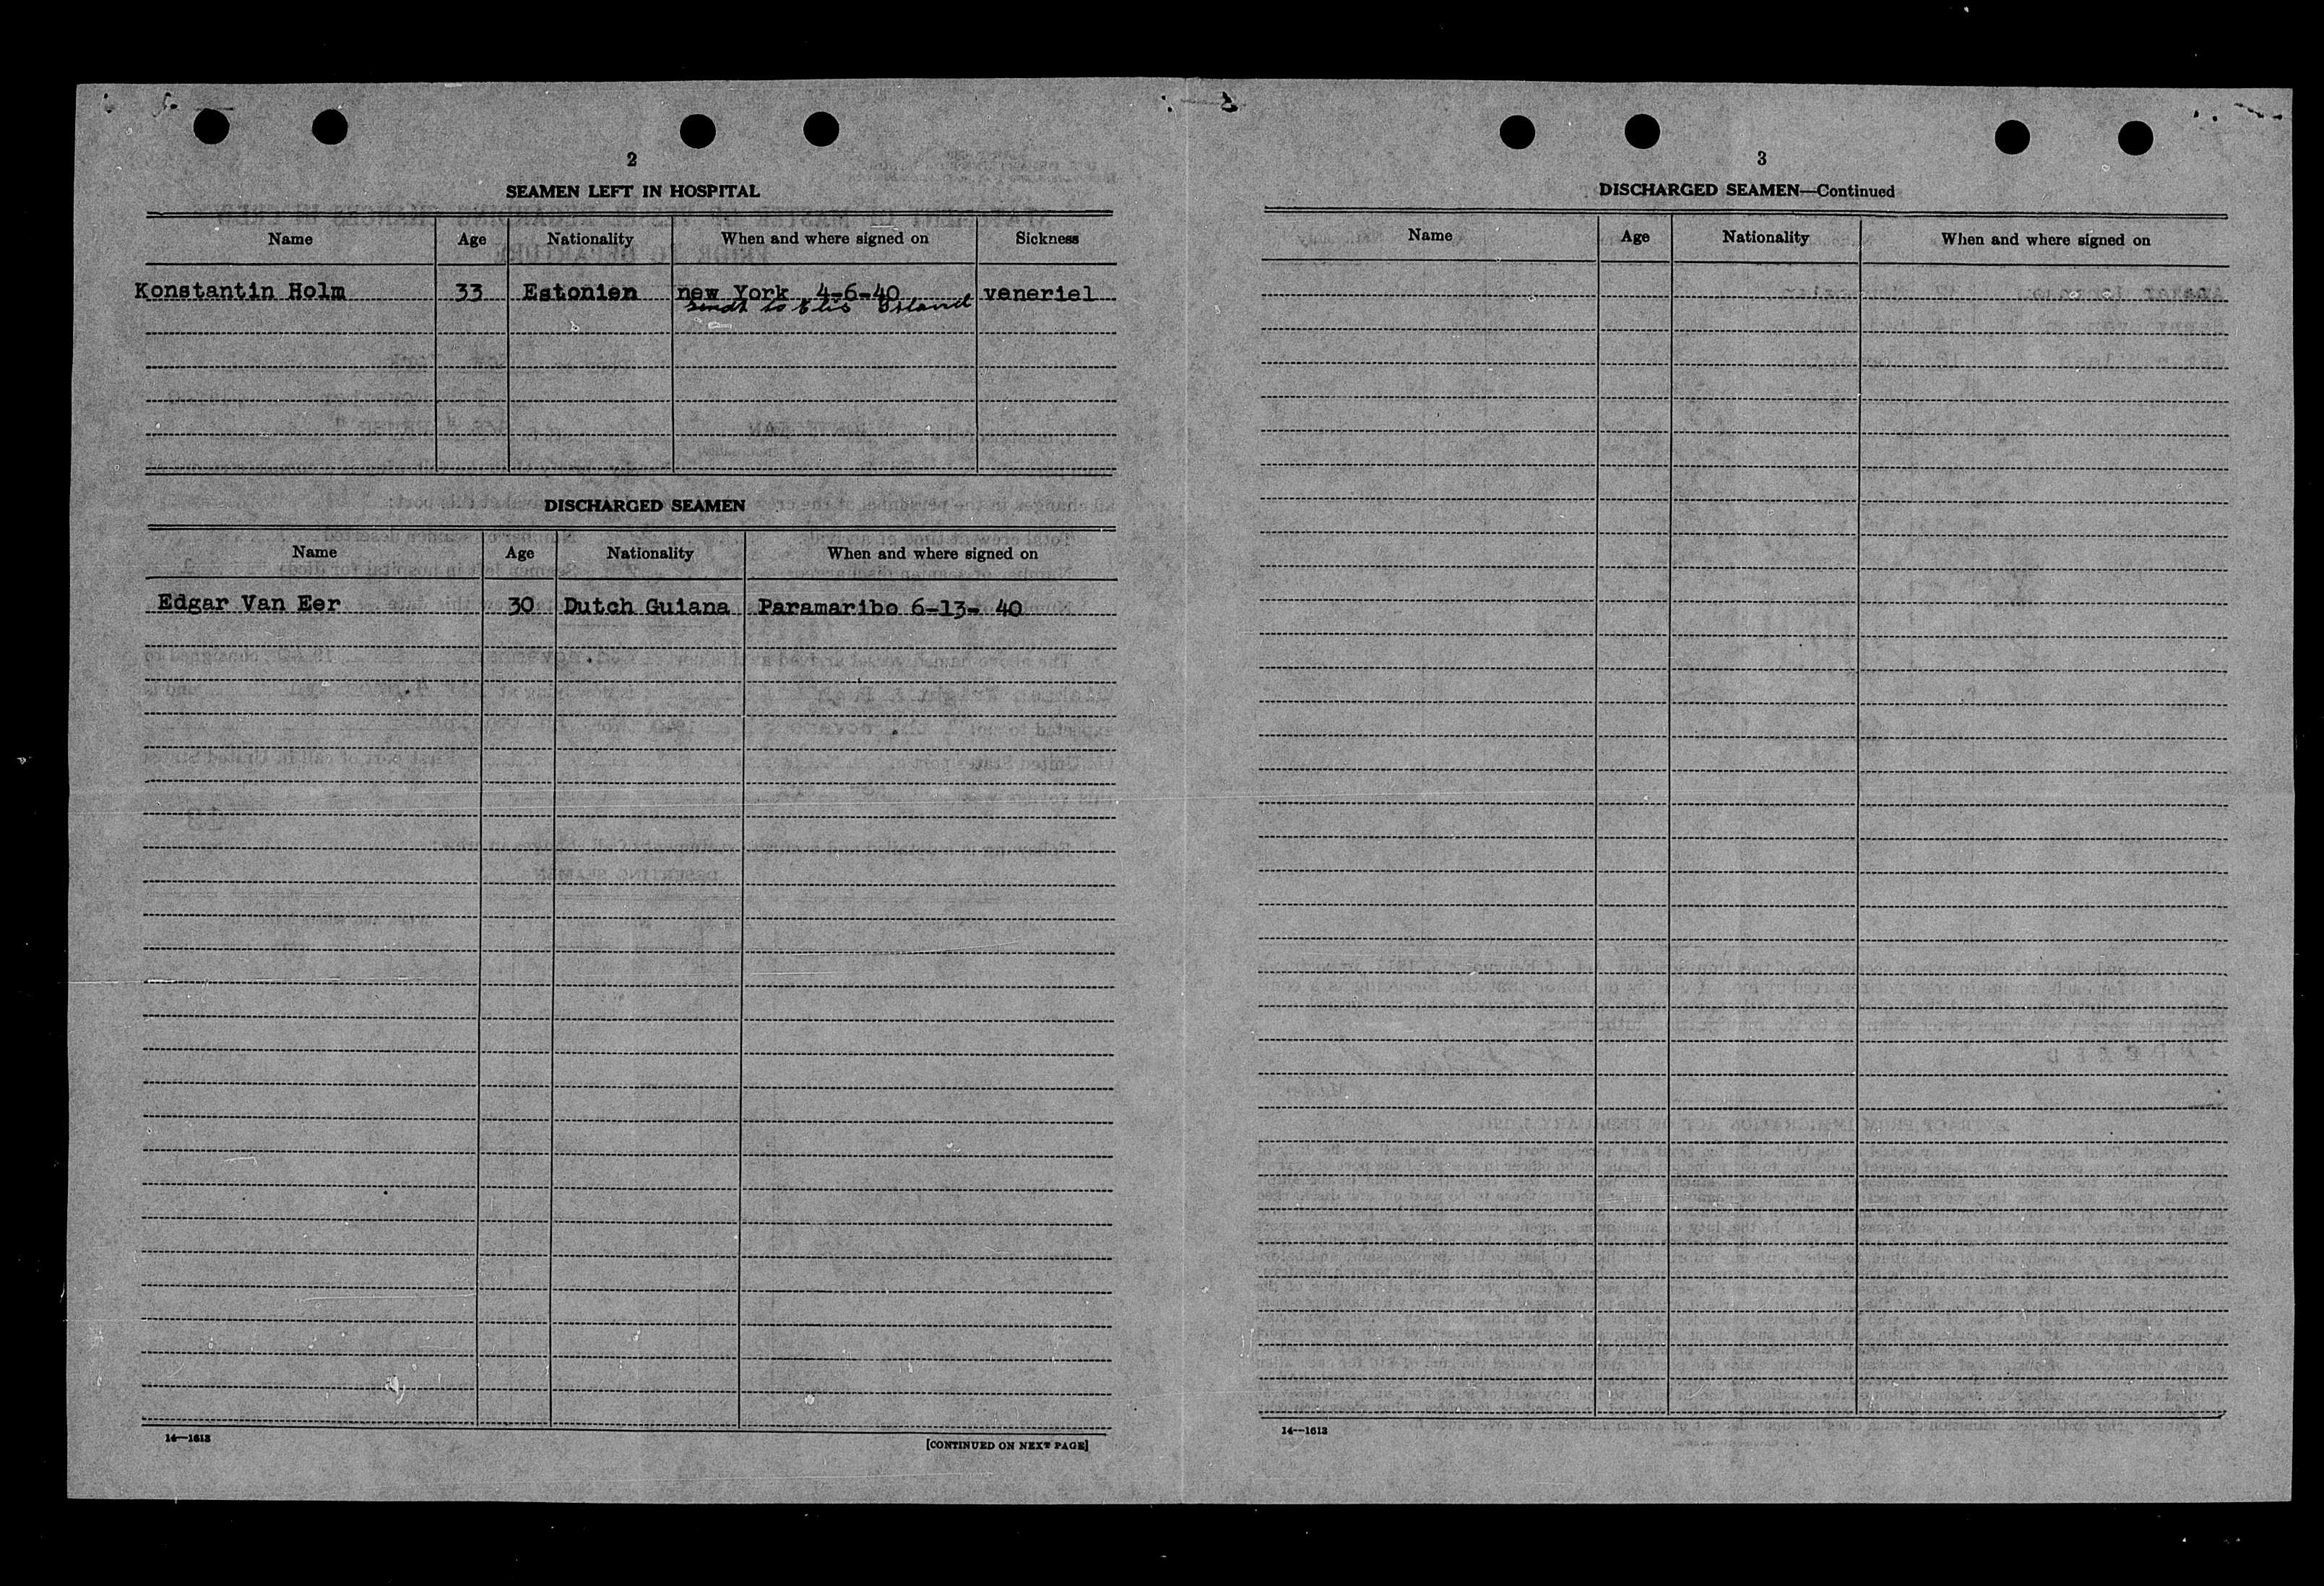 2
SEAMEN LEFT IN HOSPITAL
Name Age Nationality When and where signed on Sickness
Konstantin Holm 33 Estonien new York 4-6-40 veneriel
sendt to Elis Island
DISCHARGED SEAMEN
Name Age Nationality When and where signed on
Edgar Van Eer 30 Dutch Guiana Paramaribo 6-13- 40
14—1613
[CONTINUED ON NEXT PAGE]
3
DISCHARGED SEAMEN—Continued
Name Age Nationality When and where signed on
14—1613